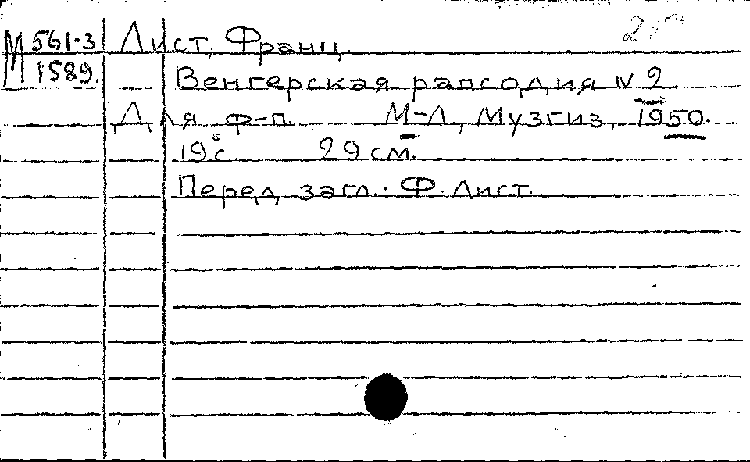 М 561-3 Лист, Франц.
1589.
Венгерская рапсодия N 2
Для ф-п. М-Л, Музгиз, 1950.
19 с 29 см.
Перед загл.: Ф. Лист.